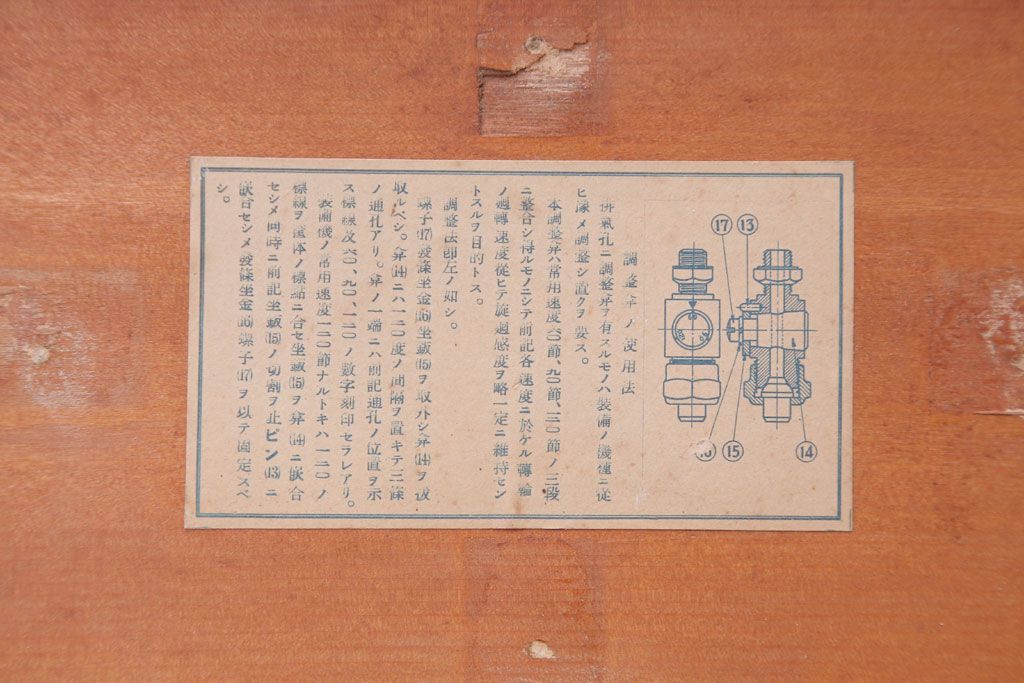 ⑰ ⑬
⑯ ⑮ ⑭
調整弁ノ使用法
氣孔ニ調整弁ヲ有スルモノハ装備ノ機速ニ從
ヒ豫メ調整シ置クヲ要ス。
本調整弁ハ常用速度六〇節、九〇節、一二〇節ノ三段
ニ整合シ得ルモノニシテ前記各速度ニ於ケル轉輪
ノ廻轉速度從ヒテ旋廻感度ヲ略一定ニ維持セン
トスルヲ目的トス。
調整法卽左ノ如シ。
螺子(17)發條坐金(16)坐鈑(15)ヲ取外シ弁(14)ヲ拔
取ルベシ。弁(14)ニハ一二〇度ノ間隔ヲ置キテ三條
ノ通孔アリ。弁ノ一端ニハ前記通孔ノ位置ヲ示
ス標線及六〇、九〇、一二〇ノ數字刻印セラレアリ。
装備機ノ常用速度一二〇節ナルトキハ一二〇ノ
標線ヲ筐体ノ標點ニ合セ坐鈑(15)ヲ弁(14)ニ嵌合
セシメ同時ニ前記坐鈑(15)ノ切割ヲ止ピン(13)ニ
嵌合セシメ發條坐金(16)螺子(17)ヲ以テ固定スベ
シ。